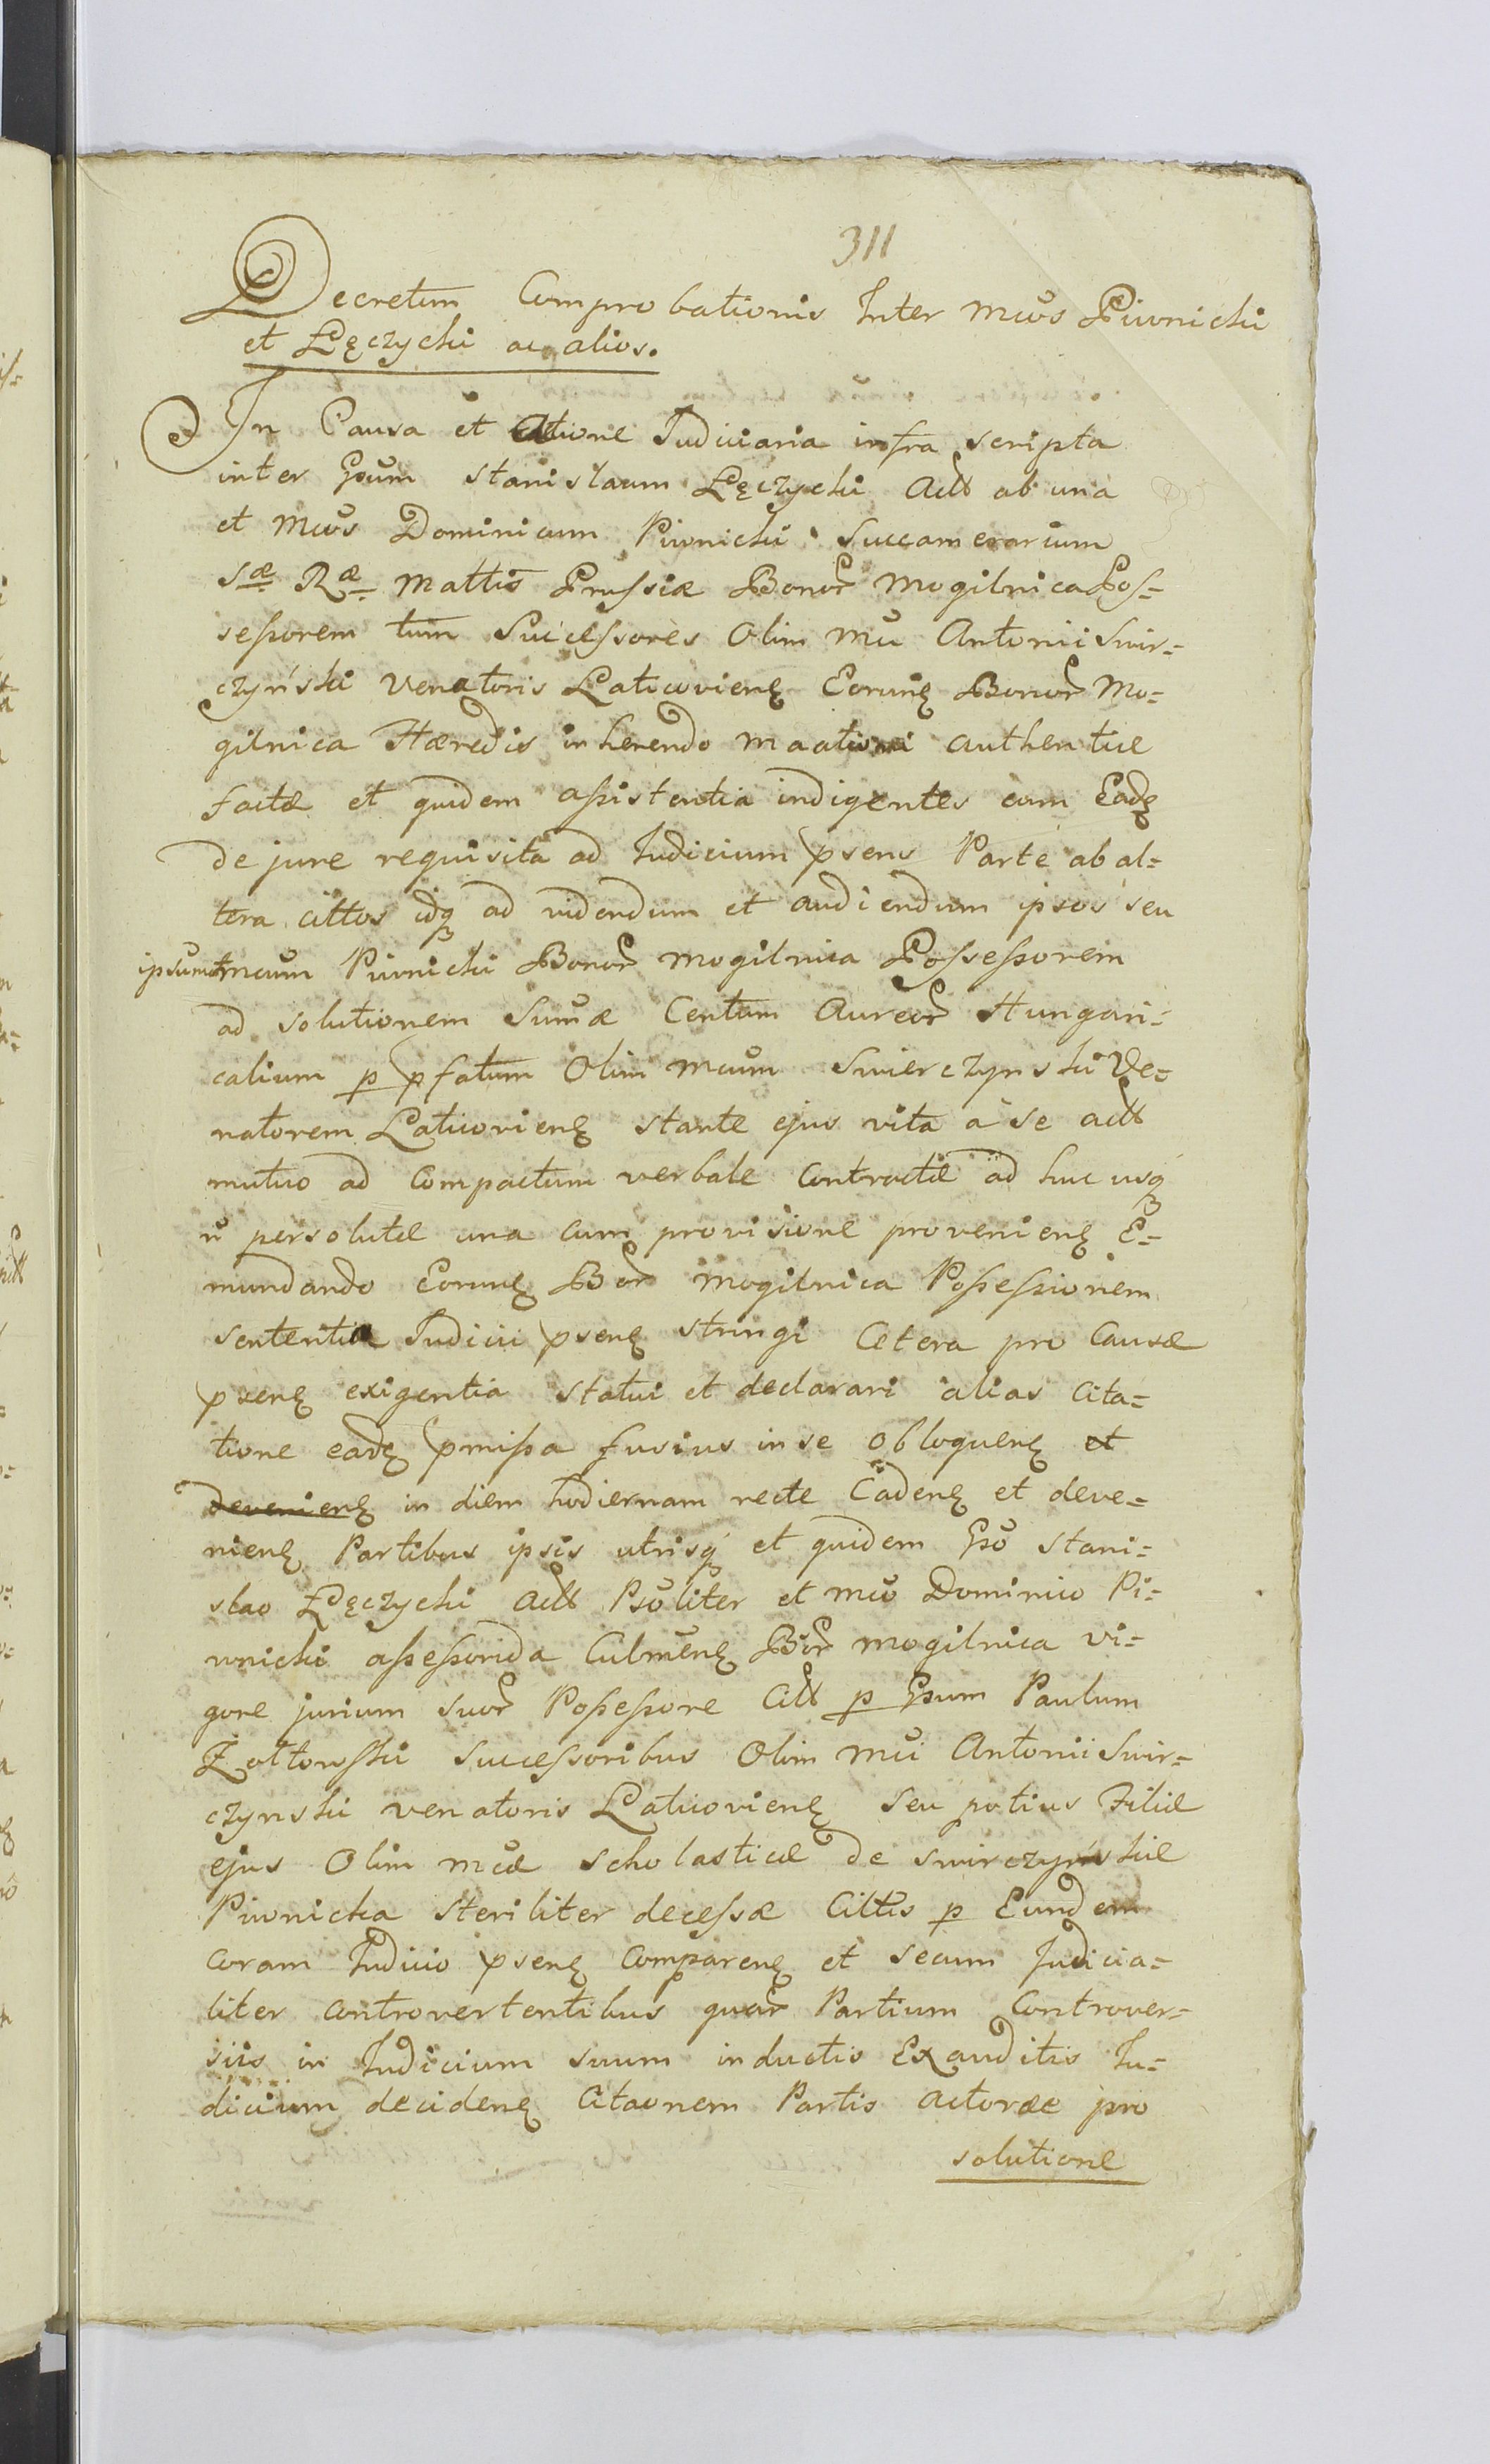 311
Decretum Comprobationis Inter Mcos Piwnicki
et Łęczycki ac alios.
In Causa et Actione Judiciaria infra scripta
inter Gsum Stanislaum Łęczycki Actt ab una
et Mcos Dominicum Piwnicki Succamerarium
Sæ Ræ Mattis Prussiæ Bonor Mogilnica Pos=
sessorem tum Successores Olim Mci Antonii Swir=
czyński Venatoris Laticoviens Eorund Bonor Mo=
gilnica Hæredis inherendo maationi authentice
factæ et quidem assistentia indigentes cum Ead
de jure requisita ad Judicium psens Parte ab al=
tera cittos idq ad videndum et audiendum ipsos seu
ipsumet Mcum Piwnicki Bonor Mogilnica Possessorem
ad solutionem Sumæ Centum Aureor Hungari=
calium p pfatum Olim Mcum Swierczynski Ve=
natorem Laticoviens stante ejus vita a se Actt
mutuo ad Compactum verbale Contractæ ad huc usq
n persolutæ una cum provisione proveniens E=
mundando Eorund Bor Mogilnica Possessionem
sententia Judicii psens stringi Cetera pro Causæ
psens exigentia statui et declarari alias Cita=
tione ead pmissa fusius in se Obloquens et
deveniens in diem hodiernam recte Cadens et deve=
niens Partibus ipsis utrisq et quidem Gso Stani=
slao Łęczycki Actt Psoliter et Mco Dominico Pi=
wnicki assessorida Culmens Bor Mogilnica vi=
gore jurium suor Possessore Citt p Gsum Paulum
Zołtowski Successoribus Olim Mci Antonii Swir=
czynski venatoris Laticoviens seu potius Filiæ
ejus Olim Mcæ Scholasticæ de Swirczyńskie
Piwnicka steriliter decessæ Cittis p Eundem
coram Judicio psens Comparens et secum Judicia=
liter controvertentibus quar Partium Controver=
siis in Judicium suum inductis Exauditis Ju=
dicium decidens Citaonem Partis actoræ pro
solutione